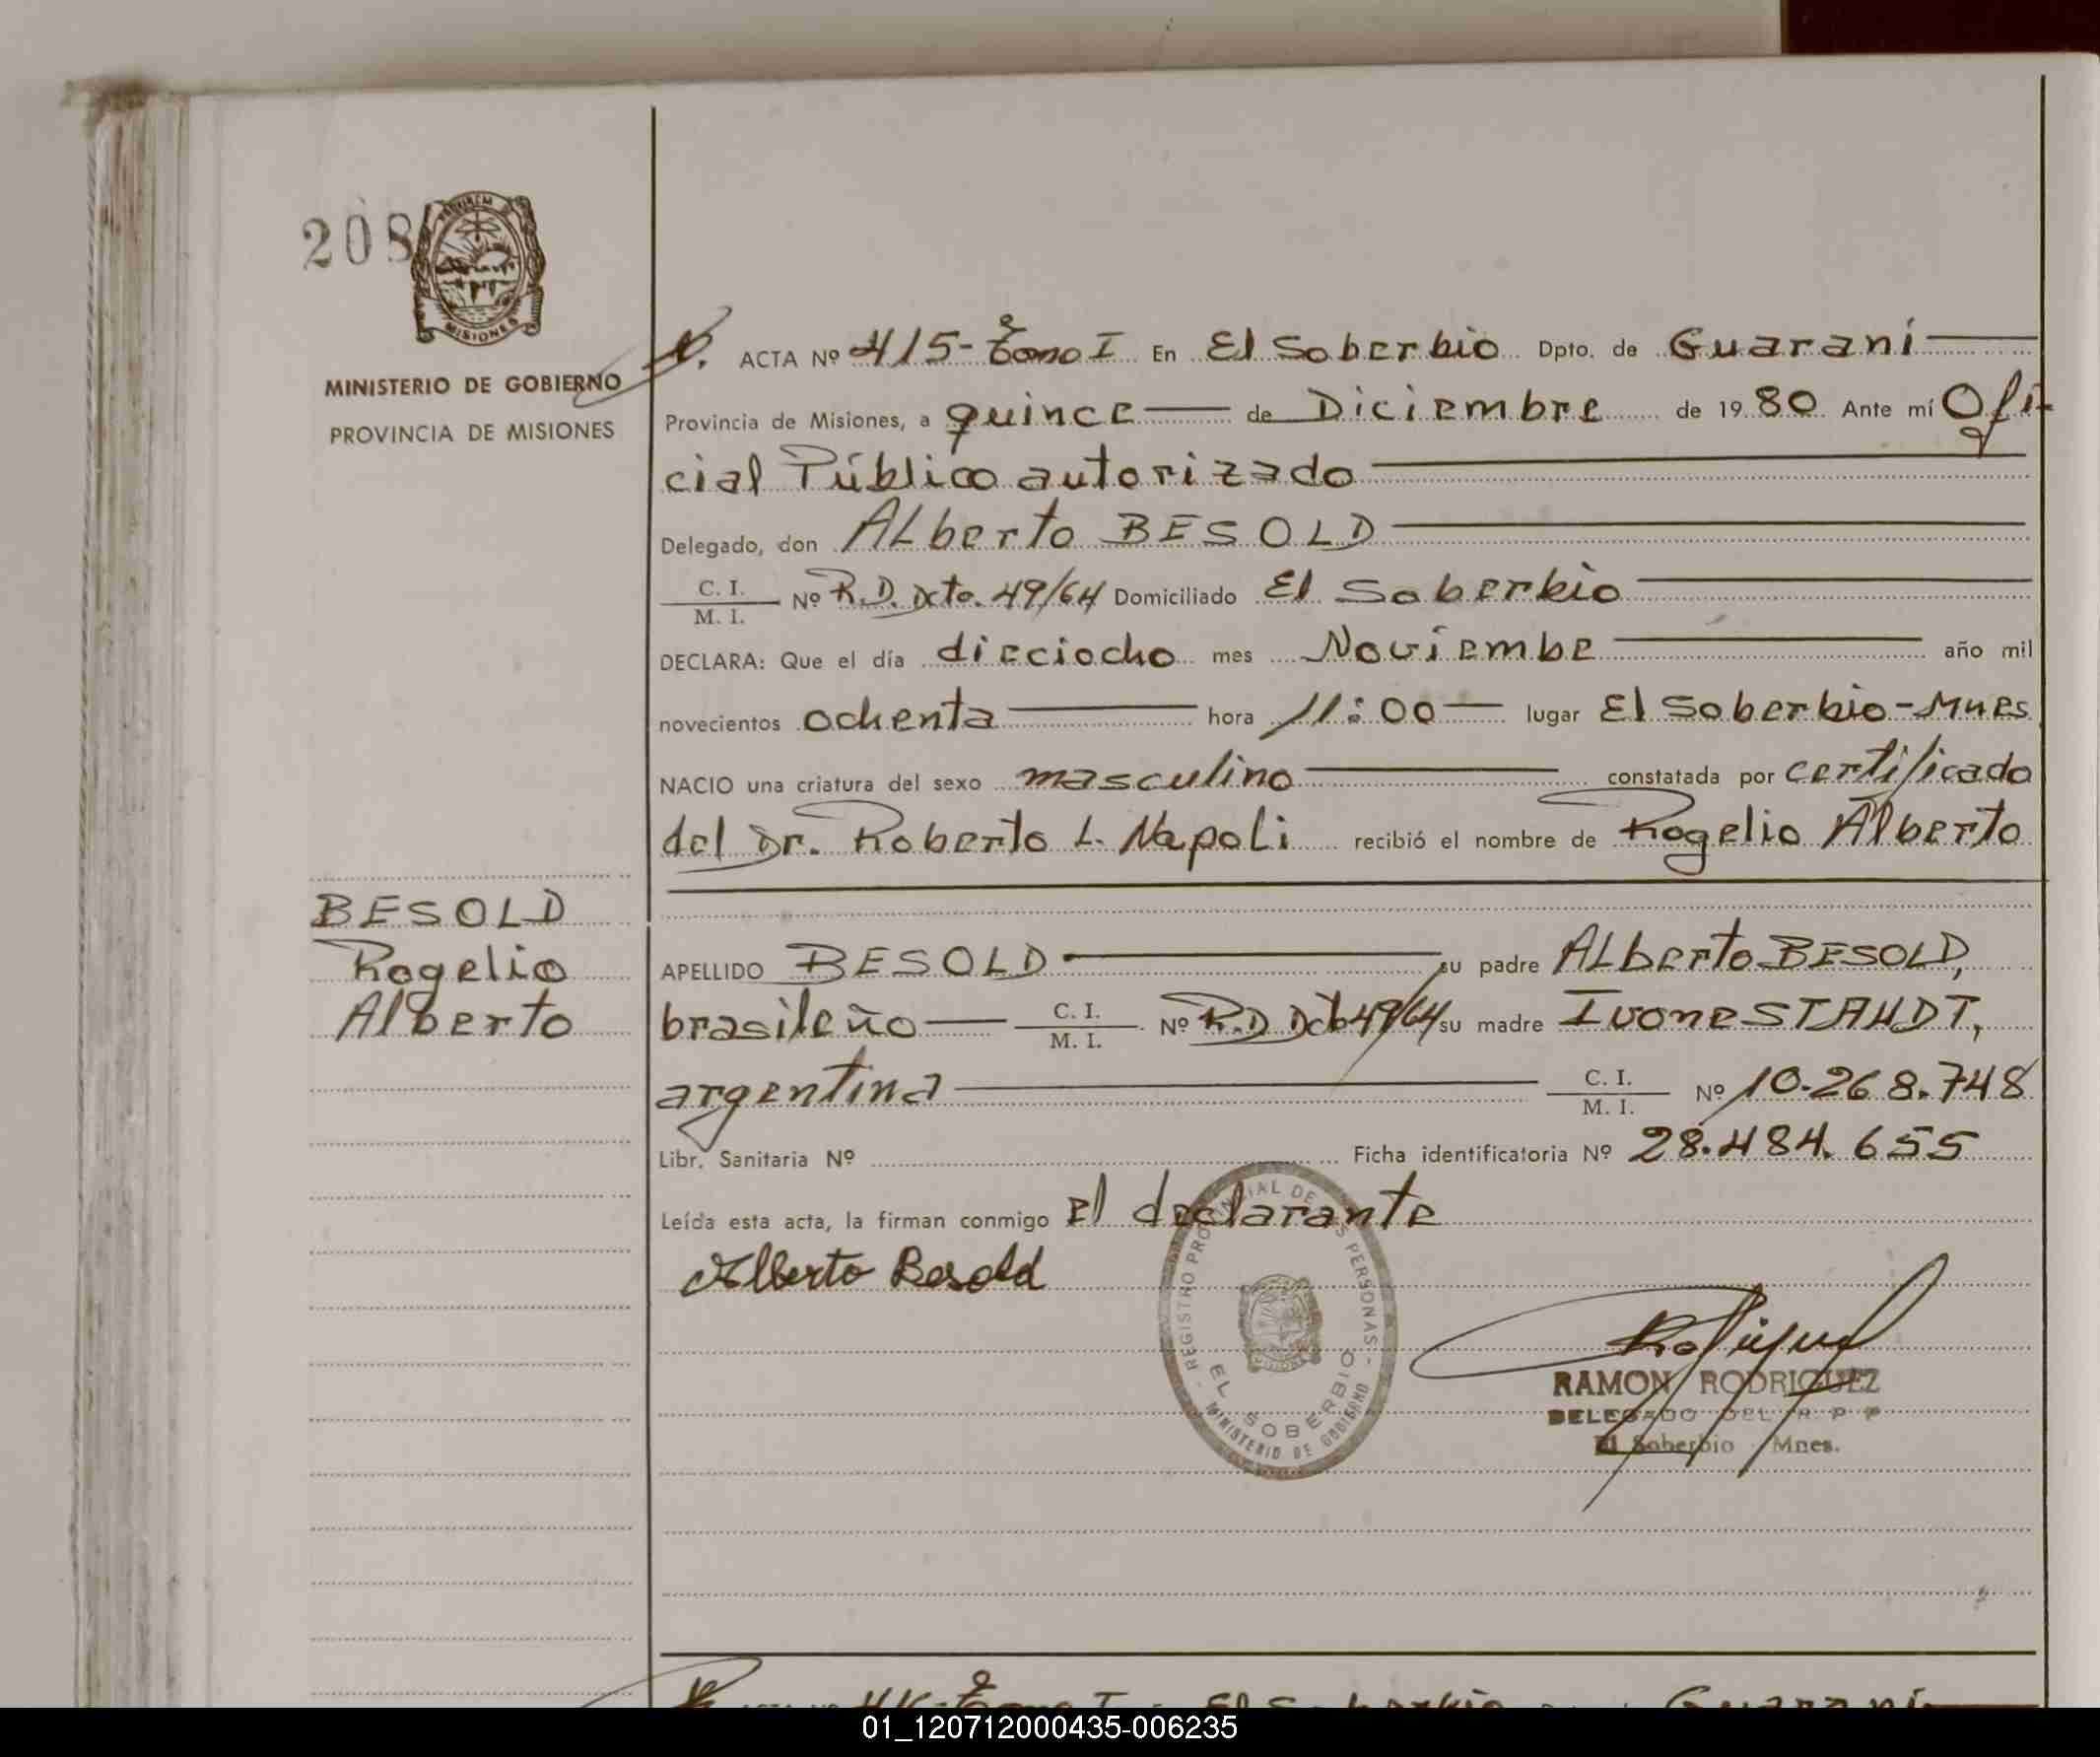 208
MISIONES
MINISTERIO DE GOBIERNO
PROVINCIA DE MISIONES
N. ACTA Nº 415- Tomo I En El Soberbio Dpto. de Guaraní
Provincia de Misiones, a quince de Diciembre de 1980 Ante mí Ofi-
cial Público autorizado
Delegado, don ALberto BESOLD
C. I.
M. I. Nº R.D. Dcto. 49/64 Domiciliado El Soberbio
DECLARA: Que el día dieciocho mes Noviembe año mil
novecientos ochenta hora 11:00 lugar El Soberbio-Mnes
NACIO una criatura del sexo masculino constatada por certificado
del Dr. Roberto L. Napoli recibió el nombre de Rogelio Alberto
BESOLD
Rogelio
Alberto
APELLIDO BESOLD su padre ALberto BESOLD,
brasileño C. I. M. I. Nº R.D Dcto 49/64 su madre Ivone STAUDT,
argentina C. I. M. I. Nº 10.268.748
Libr. Sanitaria Nº Ficha identificatoria Nº 28.484.655
Leída esta acta, la firman conmigo el declarante
Alberto Besold
REGISTRO PROVINCIAL DE LAS PERSONAS -
EL SOBERBIO
MINISTERIO DE GOBIERNO
RAMON RODRIGUEZ
DELEGADO DEL R P P
El Soberbio Mnes.
Tomo I El Soberbio Guaraní
01_120712000435-006235